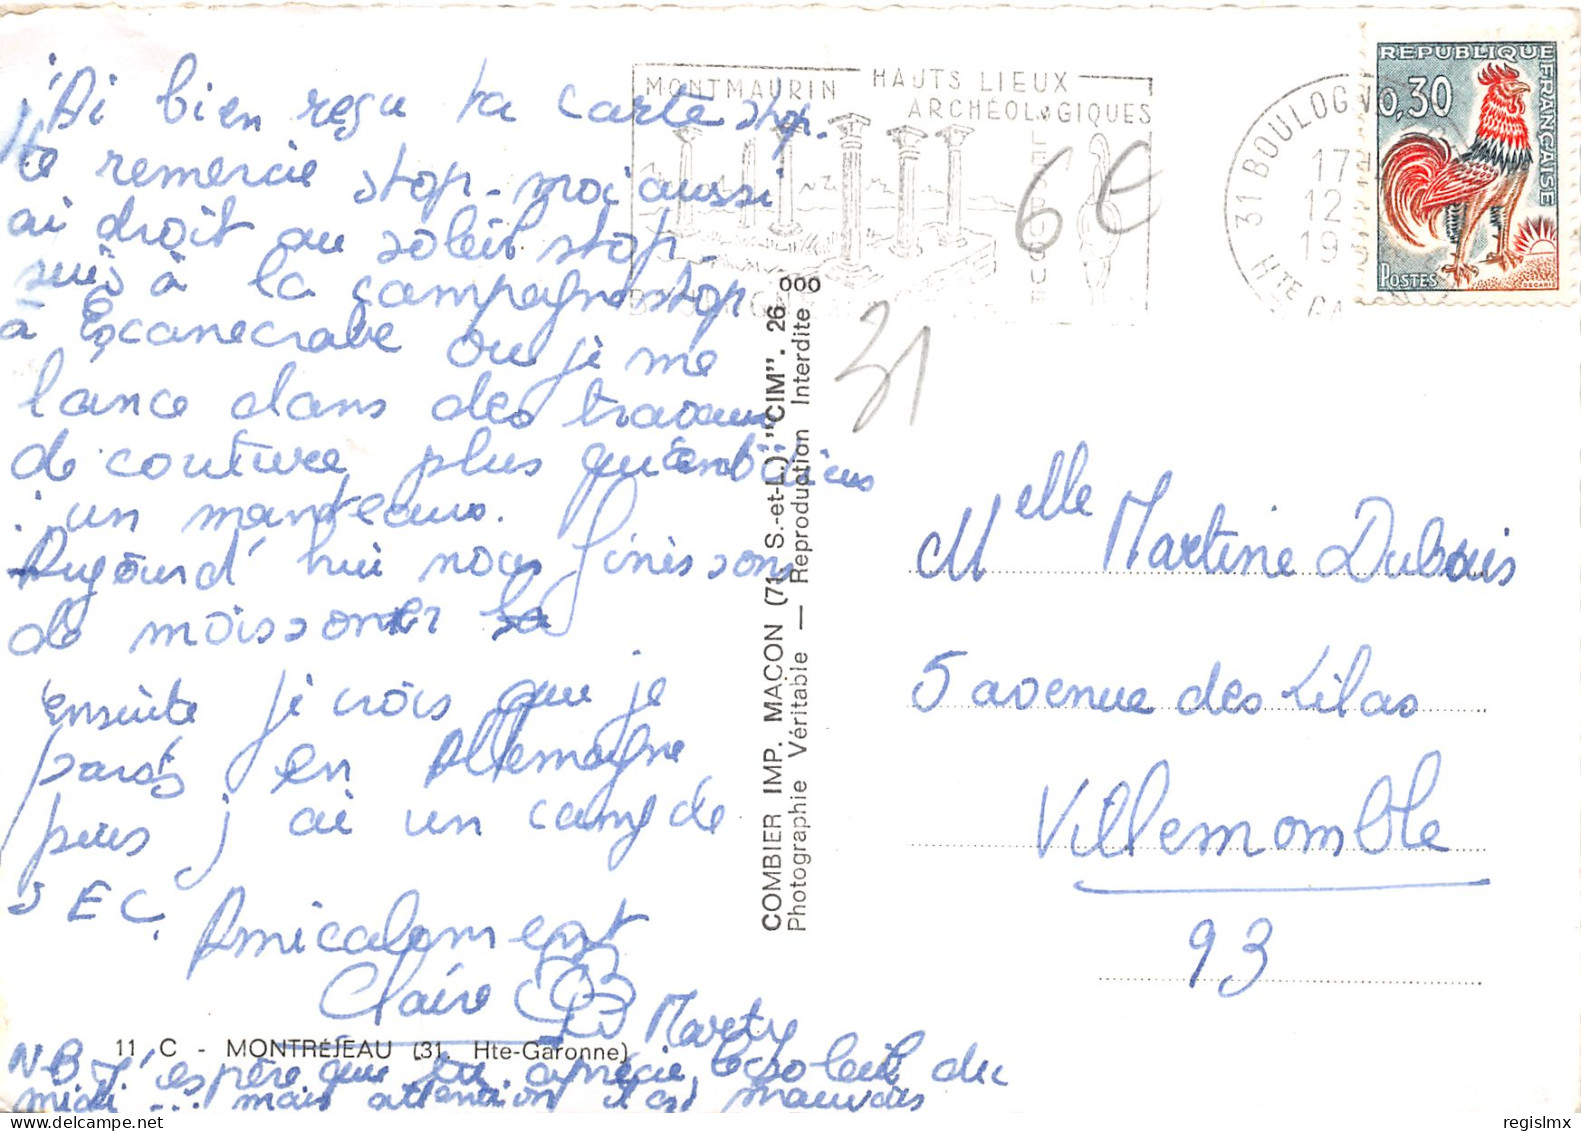 j'Ai bien reçu ta carte stop.
te remercie stop - moi aussi
ai droit au soleil stop -
suis à la campagne stop
à Escanecrabe où je me
lance dans des travaux
de couture plus qu'ambitieux
: un manteau.
Aujourd'hui nous finissons
de moissonner
ensuite je crois que je
pars en Allemagne
puis j'ai un camp de
J E C.
Amicalement
Claire
Marty
11 C - MONTRÉJEAU (31. Hte-Garonne)
NB J'espère que tu apprécie le soleil du
midi... mais attention il est mauvais
COMBIER IMP. MACON (71. S.-et-L.) "CIM". 26 000
Photographie Véritable — Reproduction Interdite
MONTMAURIN HAUTS LIEUX
ARCHÉOLOGIQUES
31 BOULOGN
17
12
19
Hte GA
REPUBLIQUE FRANÇAISE
0,30
POSTES
DECARIS
6€
31
Melle Martine Dubois
5 avenue des Lilas
Villemomble
93
regislmx